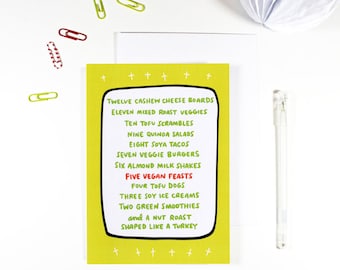 TWELVE CASHEW CHEESE BOARDS
ELEVEN MIXED ROAST VEGGIES
TEN TOFU SCRAMBLES
NINE QUINOA SALADS
EIGHT SOYA TACOS
SEVEN VEGGIE BURGERS
SIX ALMOND MILK SHAKES
FIVE VEGAN FEASTS
FOUR TOFU DOGS
THREE SOY ICE CREAMS
TWO GREEN SMOOTHIES
and A NUT ROAST
SHAPED LIKE A TURKEY